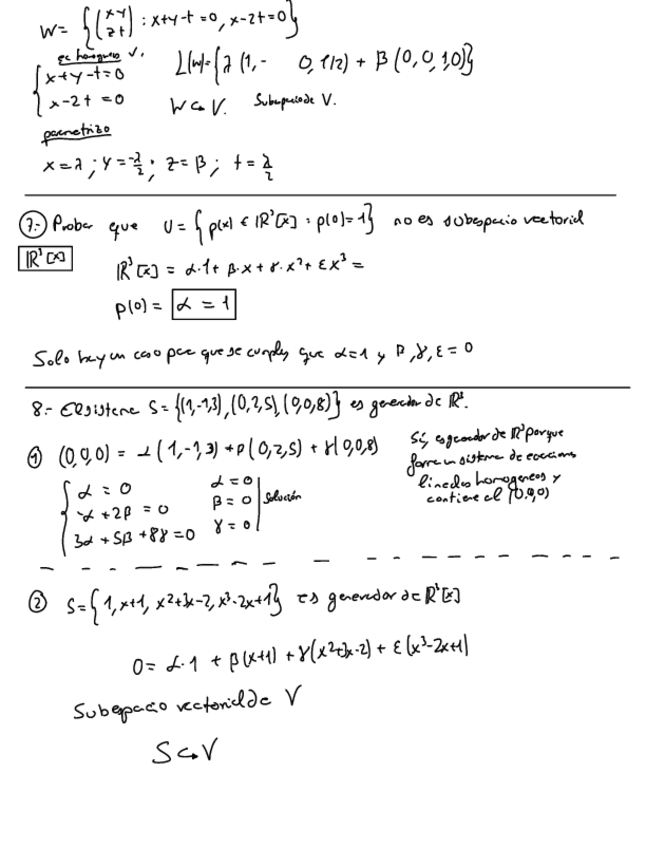 W = {(x y z t) : x+y-t=0, x-2t=0}
ec homogeneas V.
{ x+y-t=0
x-2t=0
L(W)={λ(1,- 0,1/2) + β(0,0,1,0)}
W ↪ V. Subespacio de V.
parametrizo
x=λ; y=-λ/2; z=β; t=λ/2
7.- Probar que U={p(x) ∈ ℝ³[x] : p(0)=1} no es subespacio vectorial
ℝ³[x]
ℝ³[x] = α·1+β·x+γ·x²+εx³=
p(0)= α=1
Solo hay un caso para que se cumpla que α=1 y β,γ,ε=0
8.- El sistema S={(1,-1,3),(0,2,5),(0,0,8)} es generador de ℝ³.
① (0,0,0) = α(1,-1,3)+β(0,2,5)+γ(0,0,8)
{ α=0
-α+2β=0
3α+5β+8γ=0
α=0
β=0
γ=0
Solución
Sí, es generador de ℝ³ porque
forma un sistema de ecuaciones
lineales homogeneos y
contiene el (0,0,0)
② S={1,x+1,x²+3x-2,x³-2x+1} es generador de ℝ³[x]
0=α·1+β(x+1)+γ(x²+3x-2)+ε(x³-2x+1)
Subespacio vectorial de V
S↪V